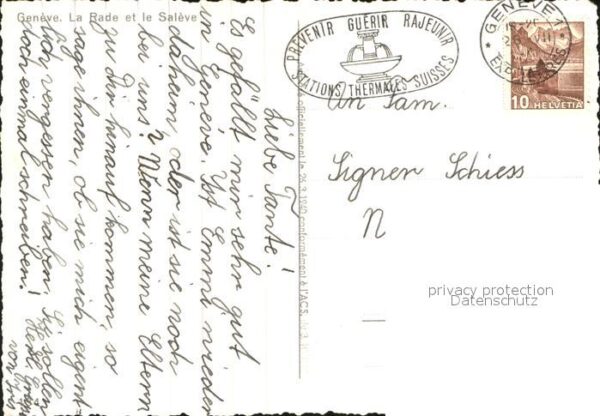 Genève. La Rade et le Salève
Liebe Tante!
Es gefällt mir sehr gut
in Genève. Ist Emmi wieder
daheim, oder ist sie noch
bei uns? Wenn meine Eltern
zu Dir hinauf kommen, so
sage ihnen, ob sie mich eigent
lich vergessen haben. Sie sollen
doch einmal schreiben!
Herzl.
von
officiellement le 26.3.1940 conformément à l'ACS.
PRÉVENIR GUÉRIR RAJEUNIR
STATIONS THERMALES SUISSES
GENÈVE 1
10 HELVETIA
An Fam.
Signer Schiess
N
privacy protection
Datenschutz